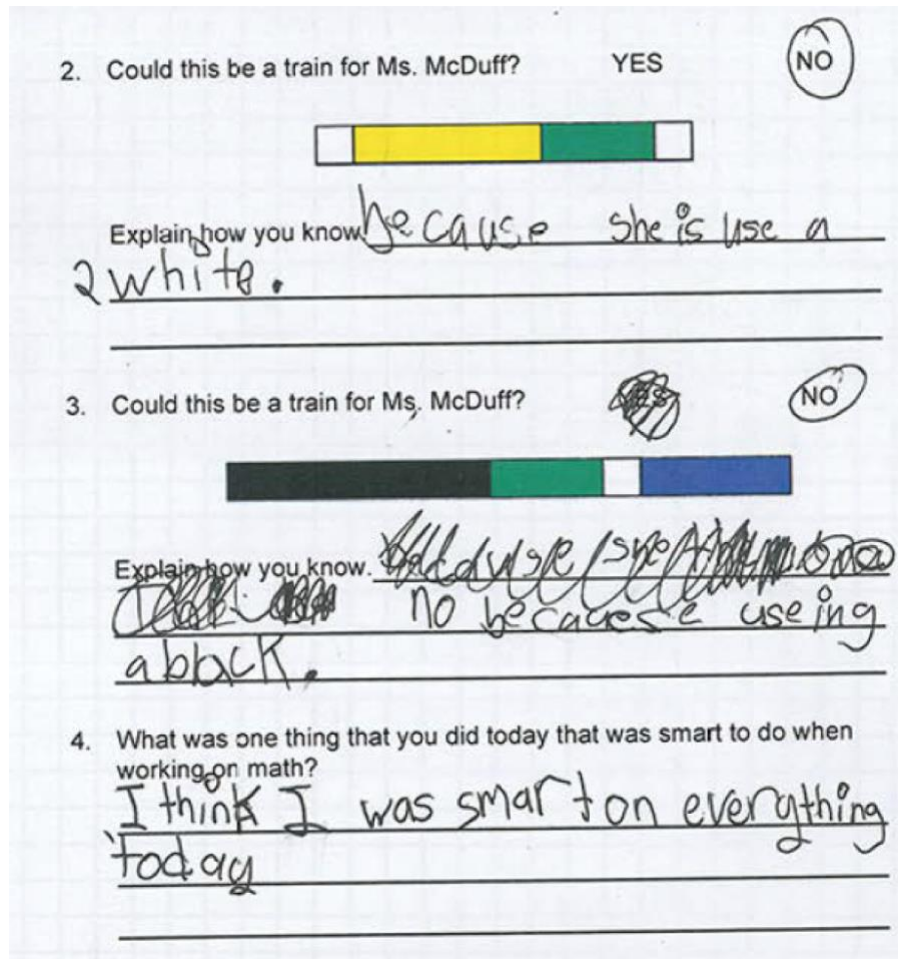 2. Could this be a train for Ms. McDuff? YES NO
Explain how you know. because she is use a
2 white.
3. Could this be a train for Ms. McDuff? NO
Explain how you know.
no becauese useing
a black.
4. What was one thing that you did today that was smart to do when
working on math?
I think I was smart on everything
today